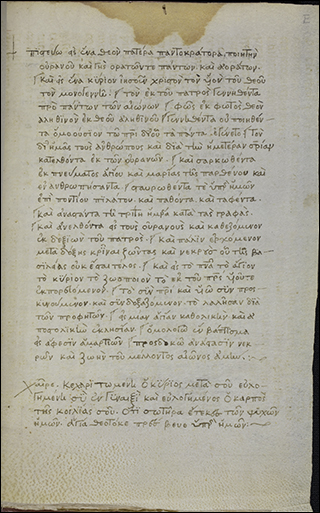 πιστευω εἰ ἑνα θεον πατερα παντοκρατορα, ποιητην
ουρανου και γης ορατων τε παντων και αορατων.
και εις ενα κυριον ιησουν χριστον τον υιον του θεου
τον μονογεννη: τον εκ του πατρος γεννηθεντα
προ παντων των αιωνων / φως εκ φωτος, θεον
αληθινον εκ θεου αληθινου / γεννηθεντα ου ποιηθεν
τα ομοουσιον τω πρι δι ου τα παντα εγενετο / τον
δι ημας τους ανθρωπους και δια την ημετεραν σριαν
κατελθοντα εκ των ουρανων. / και σαρκωθεντα
εκ πνευματος αγιου και μαριας της παρθενου και
ανθρωπισαντα / σταυρωθεντα τε υπερ ημων
επι ποντιου πιλατου. και παθοντα και ταφεντα.
και ανασταντα τη τριτη ημερα κατα τας γραφας.
/ και ανελθοντα εις τους ουρανους και καθεζομενον
εκ δεξιων του πατρος / και παλιν ερχομενον
μετα δοξης κριναι ζωντας και νεκρους ου της βα
σιλειας ουκ εσται τελος. / και εις το πνα το αγιον
το κυριον το ζωοποιον το εκ του πρς
εκπορευομενον. / το συν πρι και υιω συν προς
κυνουμενον και συνδοξαζομενον το λαλησαν δια
των προφητων. / εις μιαν αγιαν καθολικην και α
ποστολικην εκκλησιαν. / ομολογω εν βαπτισμα
εις αφεσιν αμαρτιων / προσδοκω αναστασιν νεκ
ρων και ζωην του μελλοντος αιωνος αμην.
χαιρε. κεχαριτωμενη ο κυριος μετα σου ευλο
γημενη συ εν γυναιξι και ευλογημενος ο καρπος
της κοιλιας σου. οτι σωτηρα ετεκες των ψυχων
ημων. αγια θεοτοκε πρεσβευε υπερ ημων: